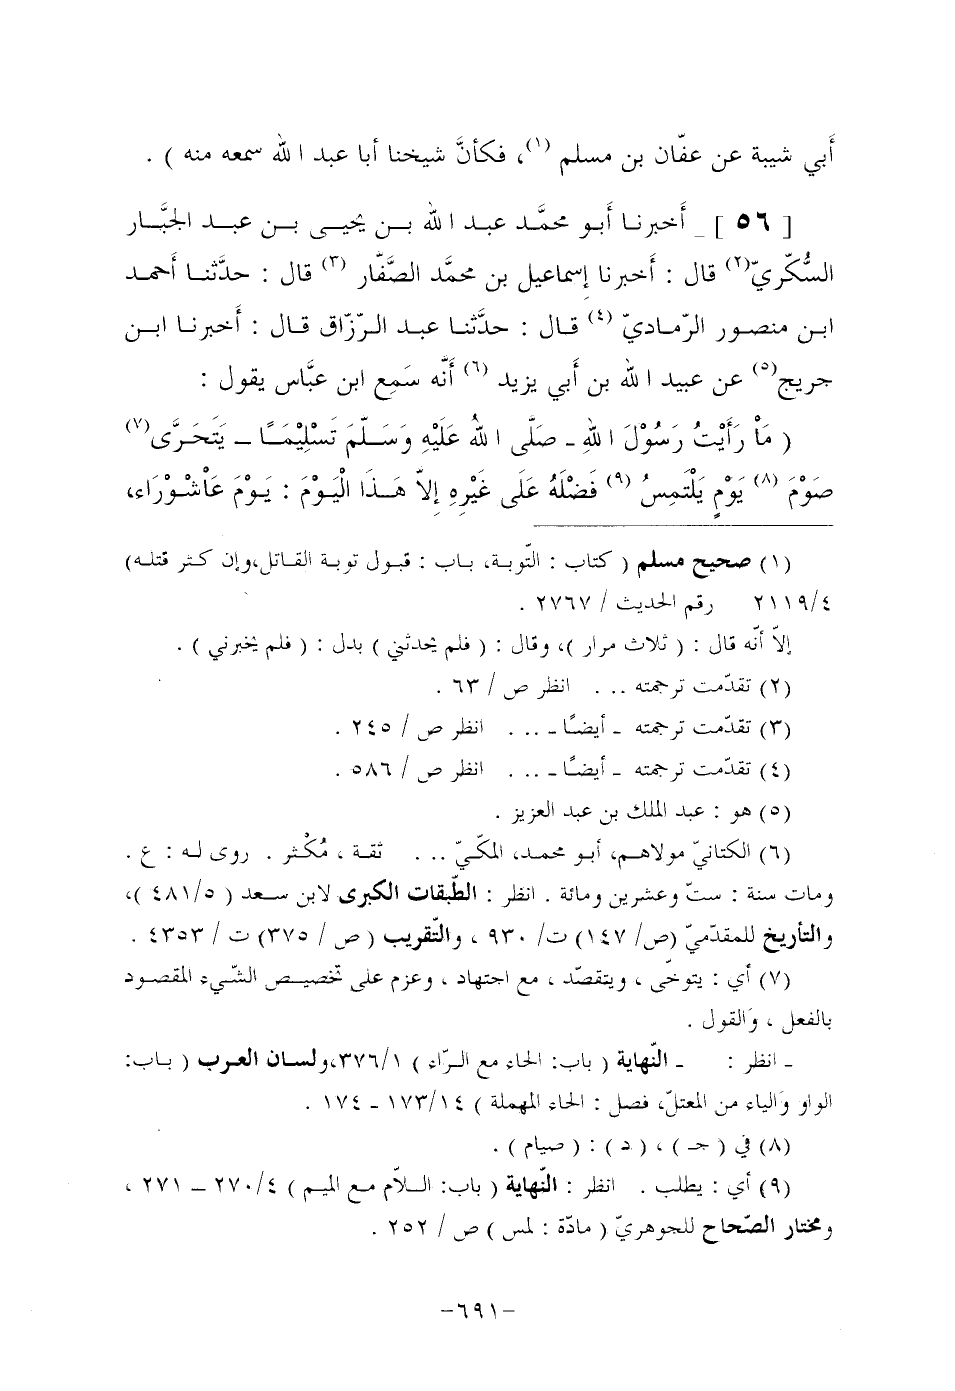 أَبي شيبة عن عفّان بن مسلم (١)، فكأنَّ شيخنا أبا عبد الله سمعه منه ) .
[ ٥٦ ] _ أخبرنا أبو محمَّد عبد الله بن يحيى بن عبد الجبَّار
السُّكّريّ(٢) قال : أَخبرنا إسماعيل بن محمَّد الصَّفّار (٣) قال : حدَّثنا أَحمد
ابن منصور الرّماديّ (٤) قال : حدَّثنا عبد الرّزّاق قال : أَخبرنا ابن
جريج(٥) عن عبيد الله بن أَبي يزيد (٦) أَنَّه سَمِع ابن عبَّاس يقول :
( مَاْ رَأَيْتُ رَسُوْلَ اللهِ - صَلَّى اللهُ عَلَيْهِ وَسَلّمَ تَسْلِيْمَاً – يَتَحَرَّى(٧)
صَوْمَ (٨) يَوْمٍ يَلْتَمِسُ (٩) فَضْلَهُ عَلَى غَيْرِهِ إِلاّ هَذَا الْيَوْمَ : يَوْمَ عَاْشْوْرَاء،
(١) صحيح مسلم ( كتاب : التّوبة، باب : قبول توبة القاتل،وإن كثر قتله)
٢١١٩/٤ رقم الحديث / ٢٧٦٧ .
إلاّ أنّه قال : ( ثلاث مرار )، وقال : ( فلم يحدثني ) بدل : ( فلم يخبرني ) .
(٢) تقدّمت ترجمته ... انظر ص / ٦٣ .
(٣) تقدّمت ترجمته - أيضًا- ... انظر ص / ٢٤٥ .
(٤) تقدّمت ترجمته - أيضًا- ... انظر ص / ٥٨٦ .
(٥) هو : عبد الملك بن عبد العزيز .
(٦) الكتانيّ مولاهم، أبو محمد، المكّيّ ... ثقة ، مُكْثر . روى له : ع .
ومات سنة : ستّ وعشرين ومائة . انظر : الطّبقات الكبرى لابن سعد ( ٤٨١/٥ )،
والتأريخ للمقدّميّ (ص/ ١٤٧) ت/ ٩٣٠ ، والتّقريب ( ص / ٣٧٥) ت / ٤٣٥٣ .
(٧) أي : يتوخّى ، ويتقصّد ، مع اجتهاد ، وعزم على تخصيص الشّيء المقصود
بالفعل ، والقول .
- انظر : - النّهاية ( باب: الحاء مع الرّاء ) ٣٧٦/١،ولسان العرب ( باب:
الواو والياء من المعتلّ، فصل : الحاء المهملة ) ١٧٣/١٤ - ١٧٤ .
(٨) في ( جـ ) ، ( د ) : ( صيام ) .
(٩) أي : يطلب . انظر : النّهاية ( باب: اللاّم مع الميم ) ٢٧٠/٤ – ٢٧١ ،
ومختار الصّحاح للجوهريّ ( مادّة : لمس ) ص / ٢٥٢ .
-٦٩١-